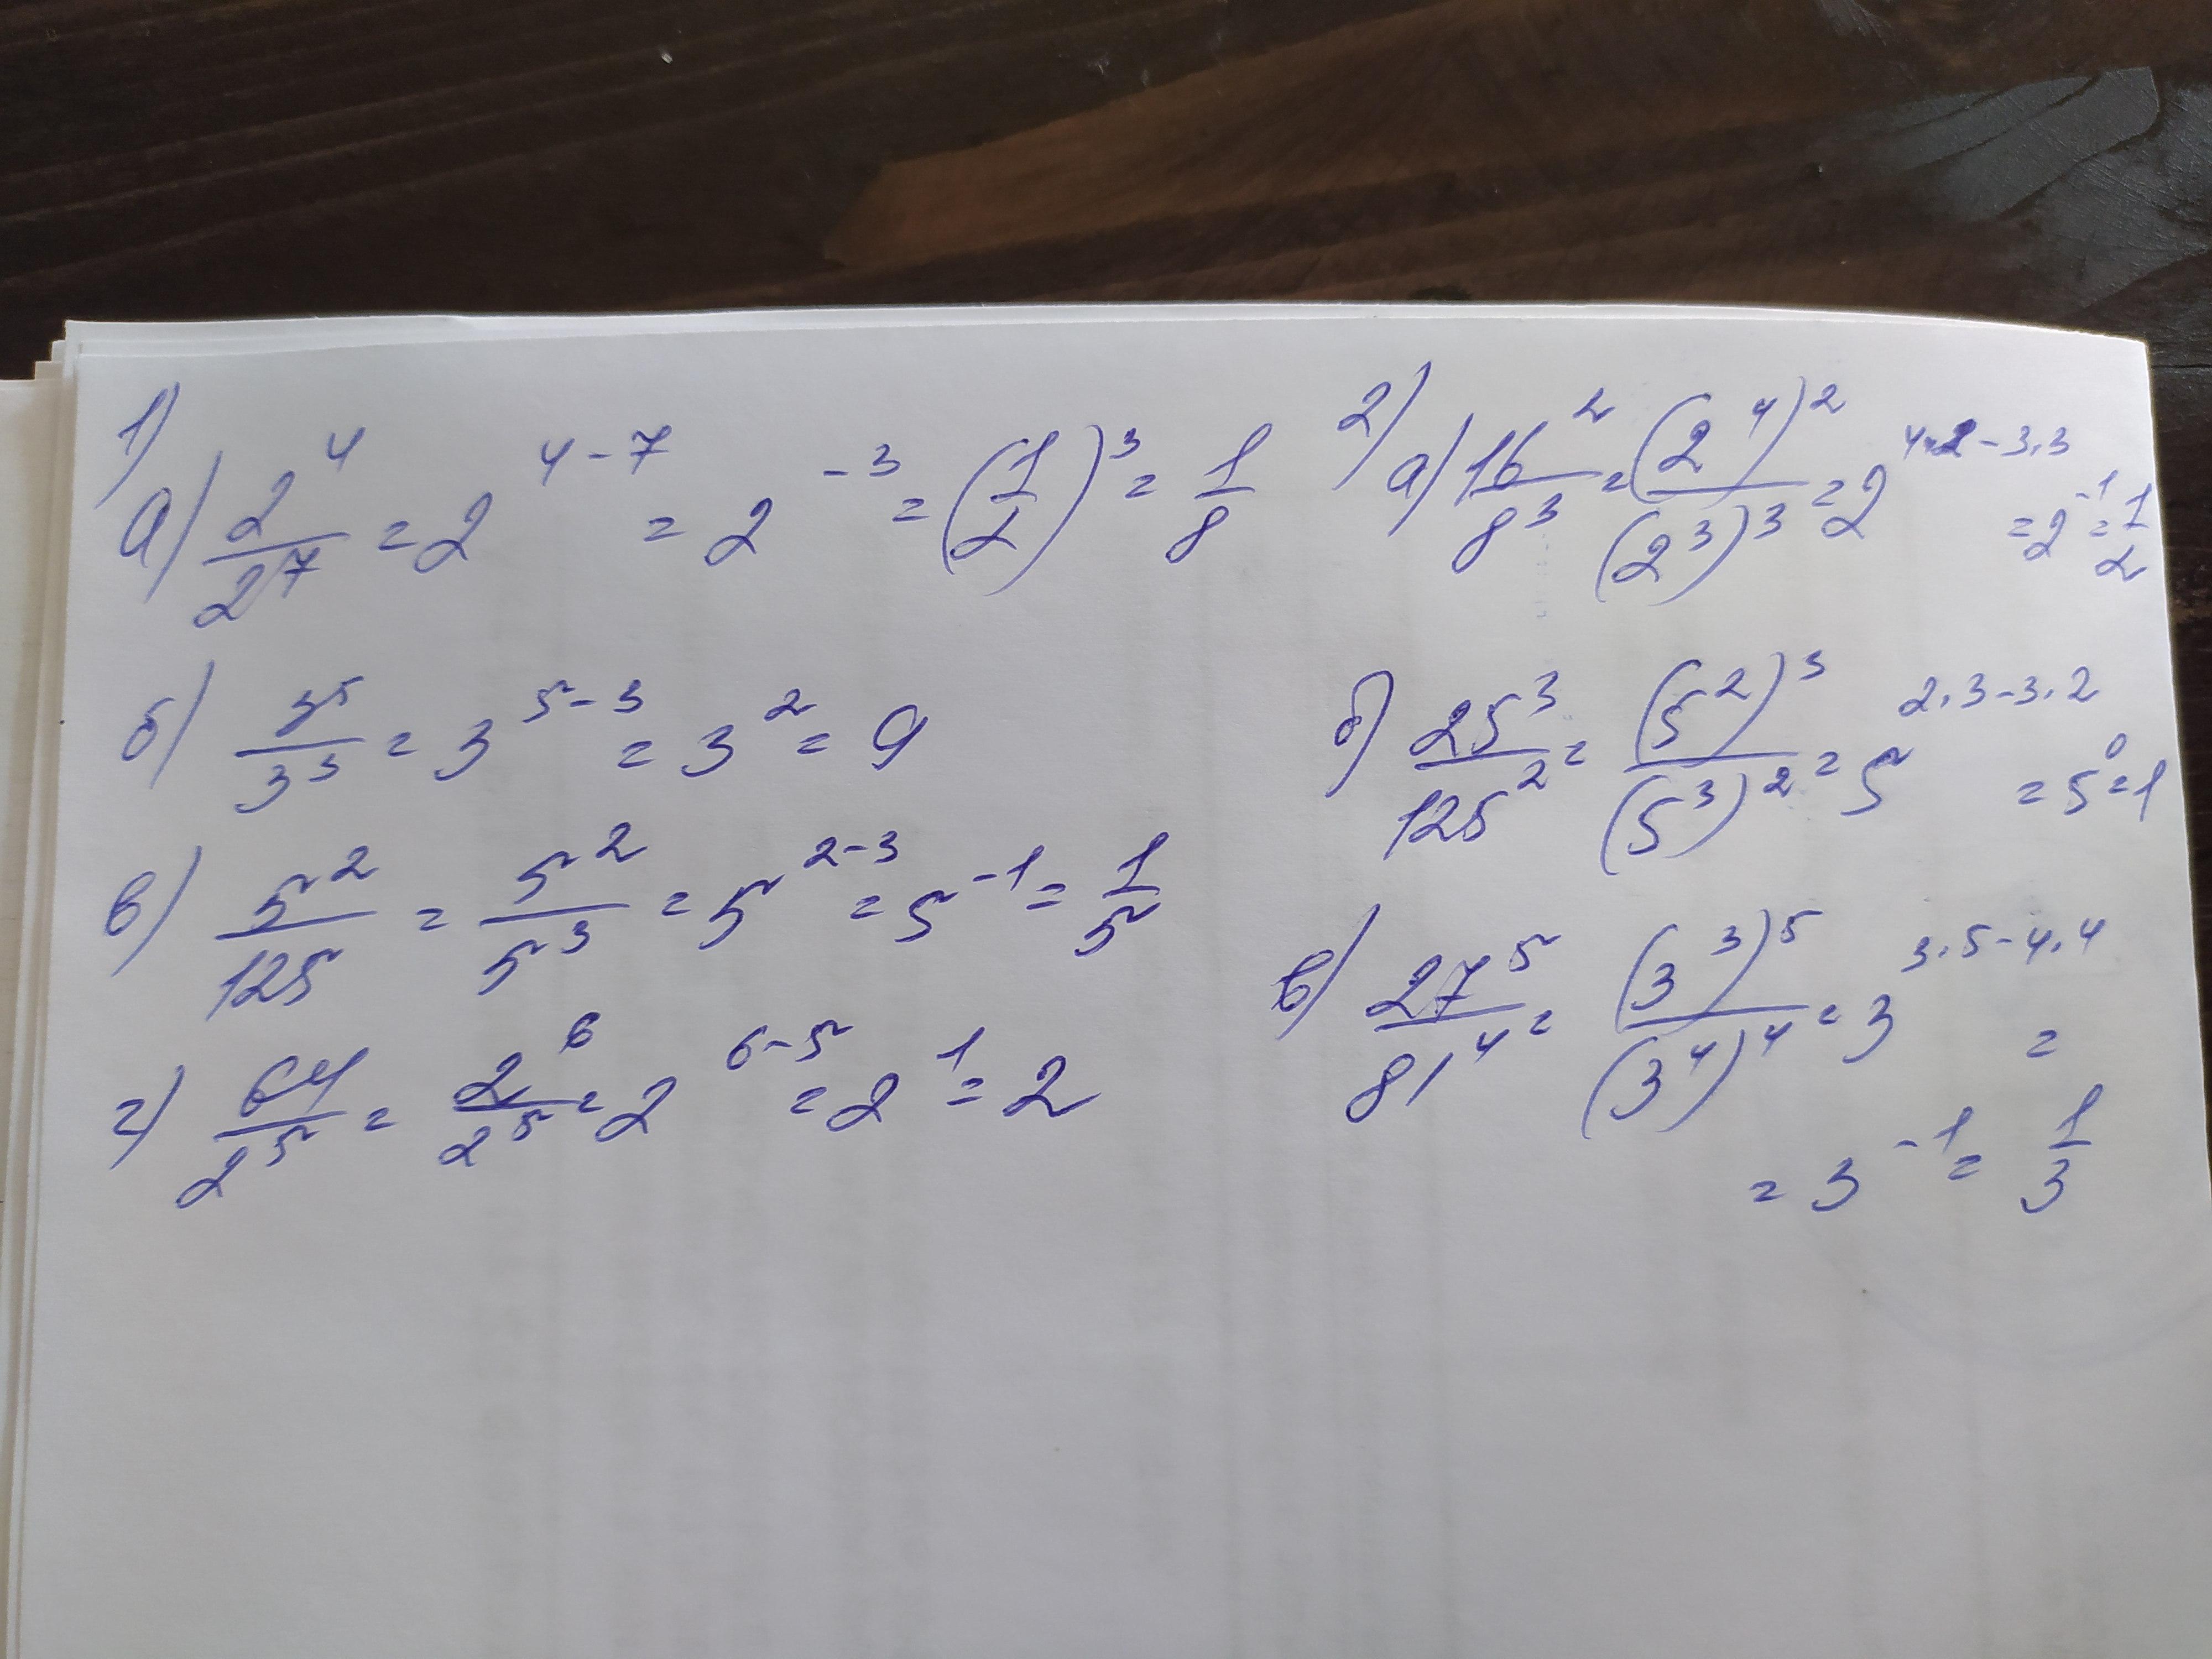 1)
а) 2⁴/2⁷ = 2⁴⁻⁷ = 2⁻³ = (1/2)³ = 1/8
б) 3⁵/3³ = 3⁵⁻³ = 3² = 9
в) 5²/125 = 5²/5³ = 5²⁻³ = 5⁻¹ = 1/5
г) 64/2⁵ = 2⁶/2⁵ = 2⁶⁻⁵ = 2¹ = 2
2)
а) 16²/8³ = (2⁴)²/(2³)³ = 2⁴·²⁻³·³ = 2⁻¹ = 1/2
б) 25³/125² = (5²)³/(5³)² = 5²·³⁻³·² = 5⁰ = 1
в) 27⁵/81⁴ = (3³)⁵/(3⁴)⁴ = 3³·⁵⁻⁴·⁴ =
= 3⁻¹ = 1/3